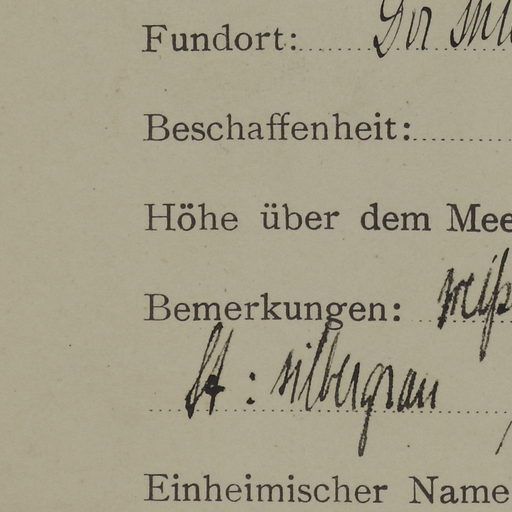 Fundort: Der
Beschaffenheit:
Höhe über dem Mee
Bemerkungen: weiß
St : silbergrau
Einheimischer Name